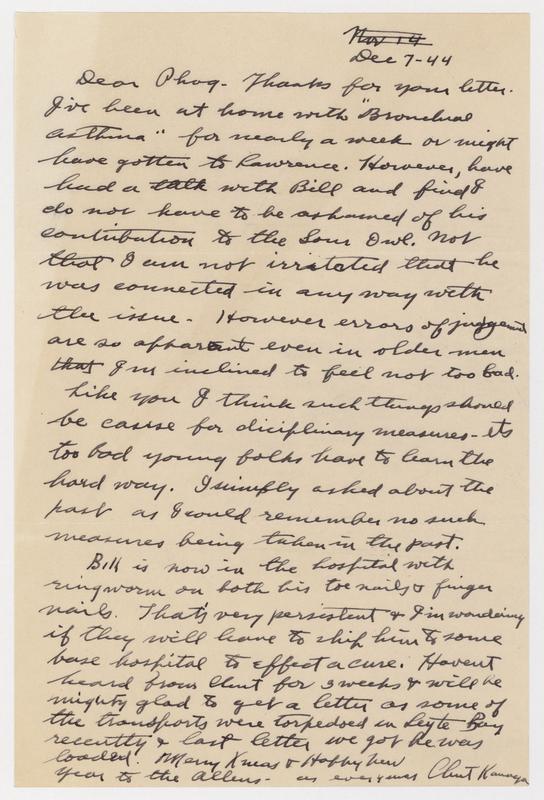 Nov 14
Dec 7-44
Dear Phog- Thanks for your letter.
I've been at home with "Bronchial
asthma" for nearly a week or might
have gotten to Lawrence. However, have
had a talk with Bill and find I
do not have to be ashamed of his
contribution to the Sour Owl. Not
that I am not irritated that he
was connected in any way with
the issue- However errors of judgement
are so apparent even in older men
that I'm inclined to feel not too bad.
Like you I think such things should
be cause for diciplinary measures- its
too bad young folks have to learn the
hard way. I simply asked about the
past as I could remember no such
measures being taken in the past.
Bill is now in the hospital with
ringworm on both his toe nails & finger
nails. That's very persistent & I'm wondering
if they will have to ship him to some
base hospital to effect a cure. Havent
heard from Clint for 3 weeks & will be
mighty glad to get a letter as some of
the transports were torpedoed in Leyte Bay
recently & last letter we got he was
loaded! Merry Xmas & Happy New
Year to the Allens- as ever yours Clint Kanaga